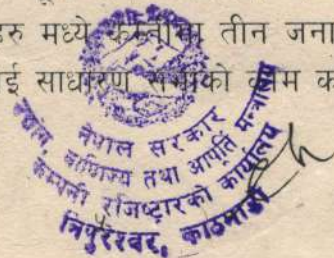 हरु मध्ये कम्तीमा तीन जना
ई साधारण सभाको काम क
नेपाल सरकार
उद्योग, वाणिज्य तथा आपूर्ति मन्त्रालय
कम्पनी रजिष्ट्रारको कार्यालय
त्रिपुरेश्वर, काठमाडौं